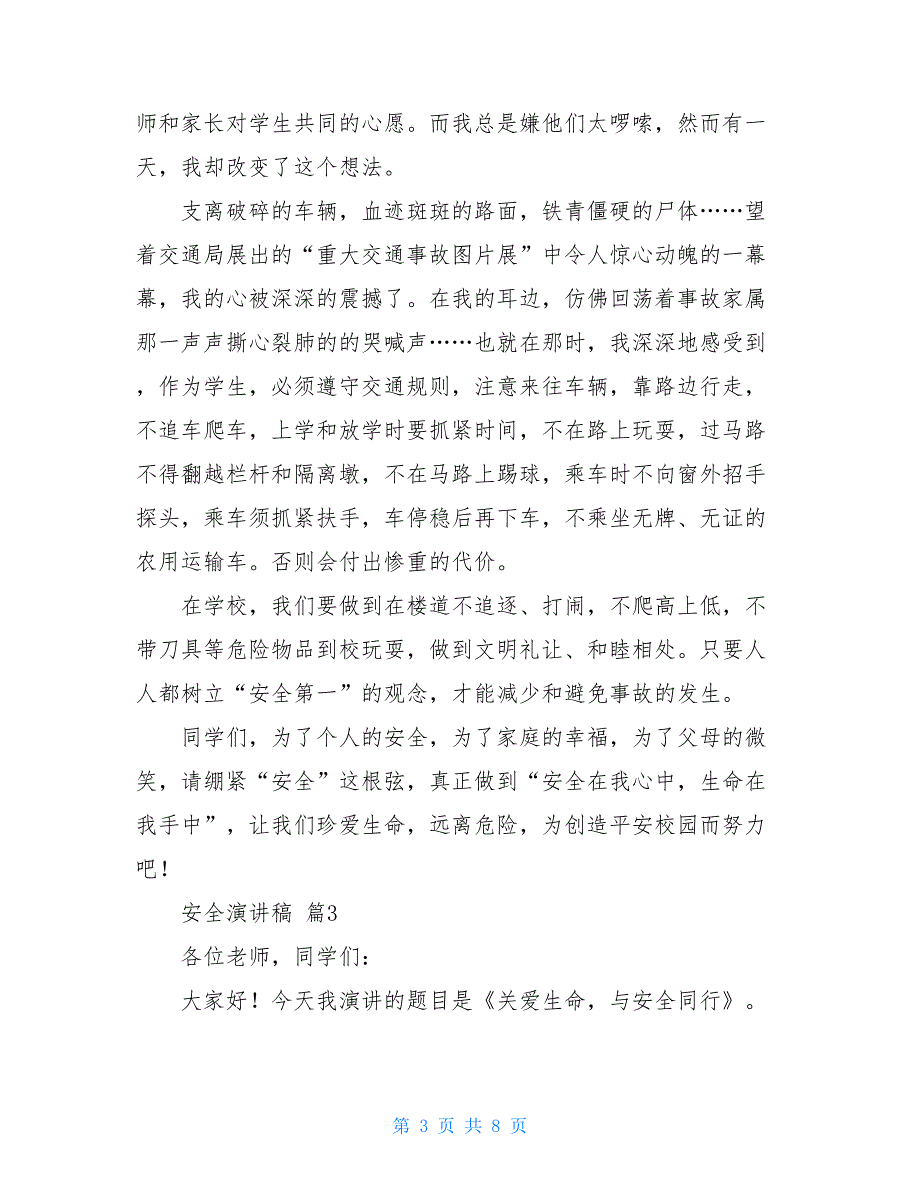 师和家长对学生共同的心愿。而我总是嫌他们太啰嗦，然而有一
天，我却改变了这个想法。
支离破碎的车辆，血迹斑斑的路面，铁青僵硬的尸体……望
着交通局展出的“重大交通事故图片展”中令人惊心动魄的一幕
幕，我的心被深深的震撼了。在我的耳边，仿佛回荡着事故家属
那一声声撕心裂肺的的哭喊声……也就在那时，我深深地感受到
，作为学生，必须遵守交通规则，注意来往车辆，靠路边行走，
不追车爬车，上学和放学时要抓紧时间，不在路上玩耍，过马路
不得翻越栏杆和隔离墩，不在马路上踢球，乘车时不向窗外招手
探头，乘车须抓紧扶手，车停稳后再下车，不乘坐无牌、无证的
农用运输车。否则会付出惨重的代价。
在学校，我们要做到在楼道不追逐、打闹，不爬高上低，不
带刀具等危险物品到校玩耍，做到文明礼让、和睦相处。只要人
人都树立“安全第一”的观念，才能减少和避免事故的发生。
同学们，为了个人的安全，为了家庭的幸福，为了父母的微
笑，请绷紧“安全”这根弦，真正做到“安全在我心中，生命在
我手中”，让我们珍爱生命，远离危险，为创造平安校园而努力
吧！
安全演讲稿 篇3
各位老师，同学们：
大家好！今天我演讲的题目是《关爱生命，与安全同行》。
第 3 页 共 8 页